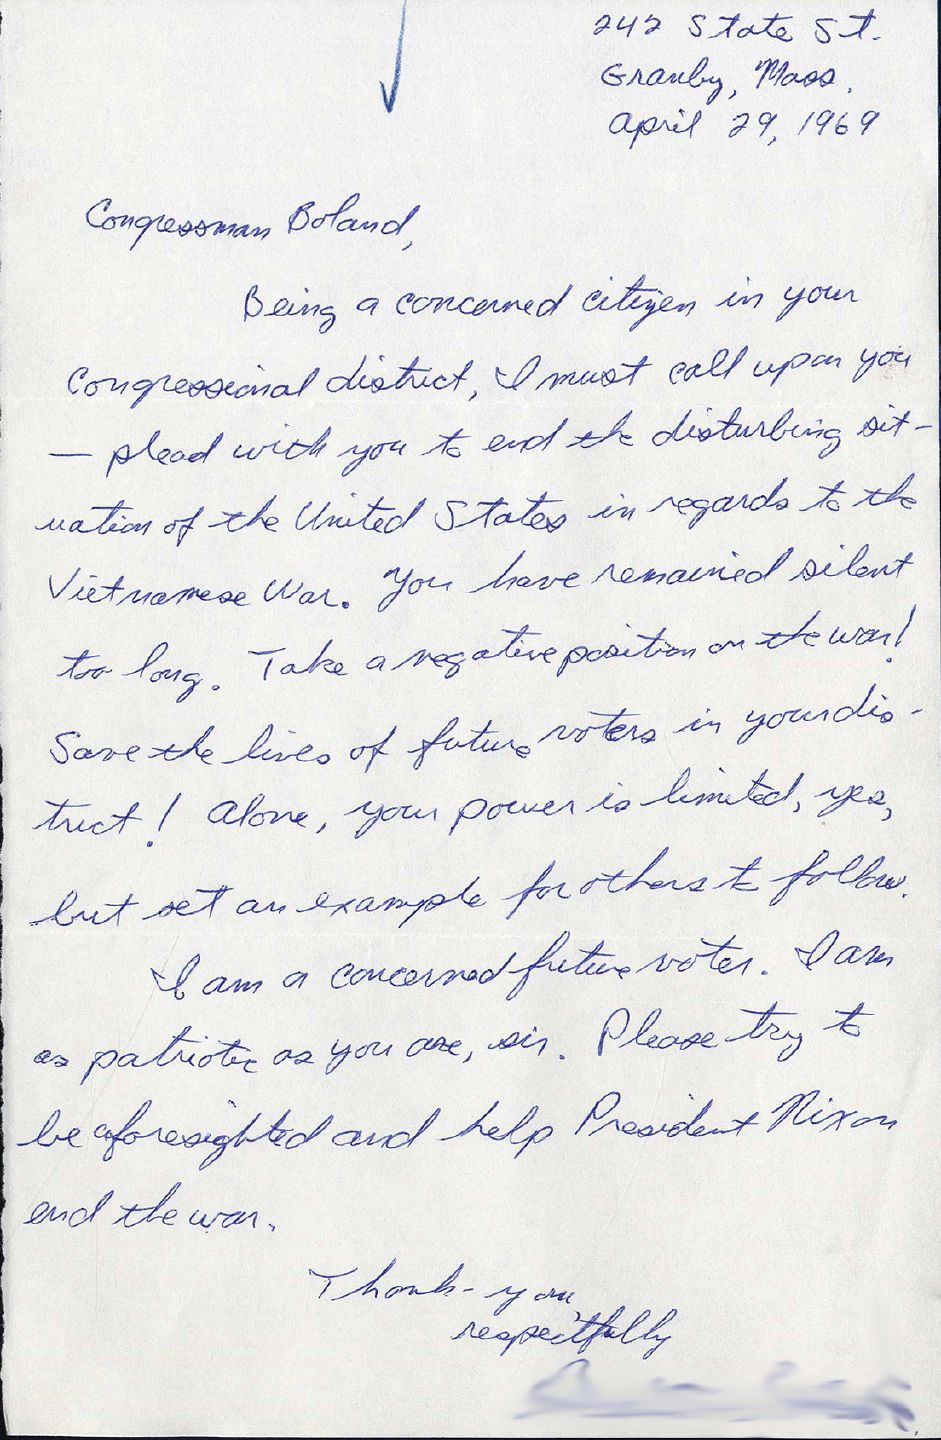 242 State St.
Granby, Mass.
April 29, 1969
Congressman Boland,
Being a concerned citizen in your
Congressional district, I must call upon you
— plead with you to end the disturbing sit-
uation of the United States in regards to the
Vietnamese War. You have remained silent
too long. Take a negative position on the war!
Save the lives of future voters in your dis-
trict! Alone, your power is limited, yes,
but set an example for others to follow.
I am a concerned future voter. I am
as patriotic as you are, sir. Please try to
be aforesighted and help President Nixon
end the war.
Thank-you,
respectfully